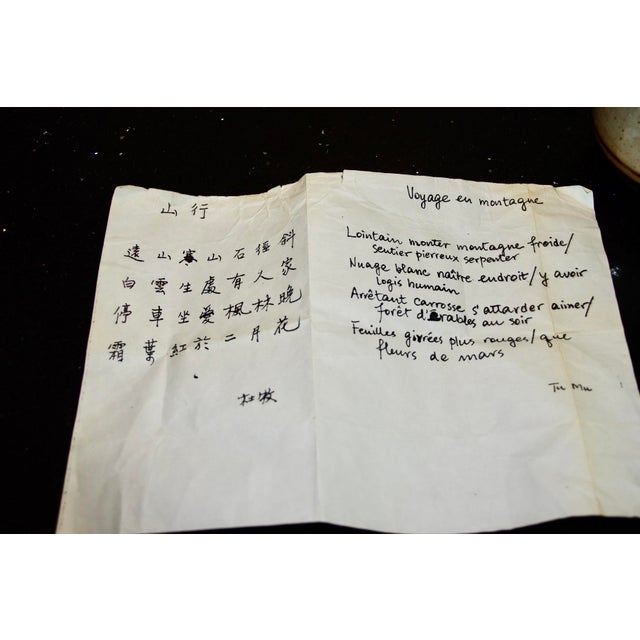 山行
遠山寒山石徑斜
白雲生處有人家
停車坐愛楓林晚
霜葉紅於二月花
杜牧
Voyage en montagne
Lointain monter montagne froide/
sentier pierreux serpenter
Nuage blanc naître endroit/y avoir
logis humain
Arrêtant carrosse s'attarder aimer/
forêt d'érables au soir
Feuilles givrées plus rouges/que
fleurs de mars
Tu Mu